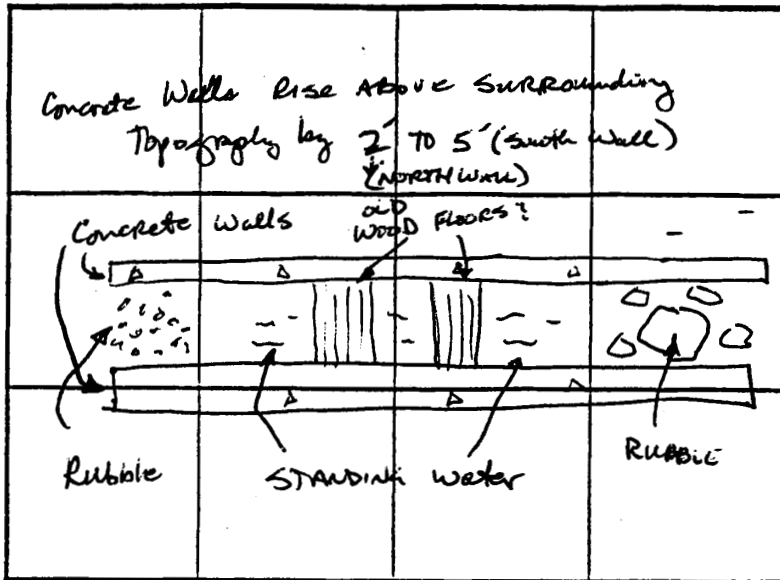 Concrete Walls Rise Above Surrounding
Topography by 2' to 5' (South Wall)
(NORTH WALL)
Concrete Walls
OLD WOOD FLOORS?
Rubble
STANDING Water
RUBBLE